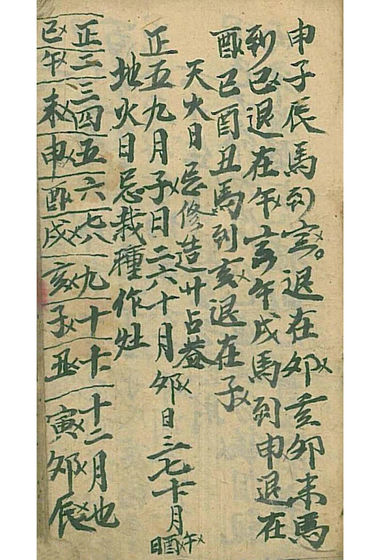 申子辰馬到寅。退在卯亥卯未馬
到巳退在午寅午戌馬到申退在
酉巳酉丑馬到亥退在子
天火日忌修造廾占蓋
正五九月子日二六十月卯日三七十月午
酉日
地火日忌栽種作灶
正二三四五六七八九十十一十二月也
巳午未申酉戌亥子丑寅卯辰